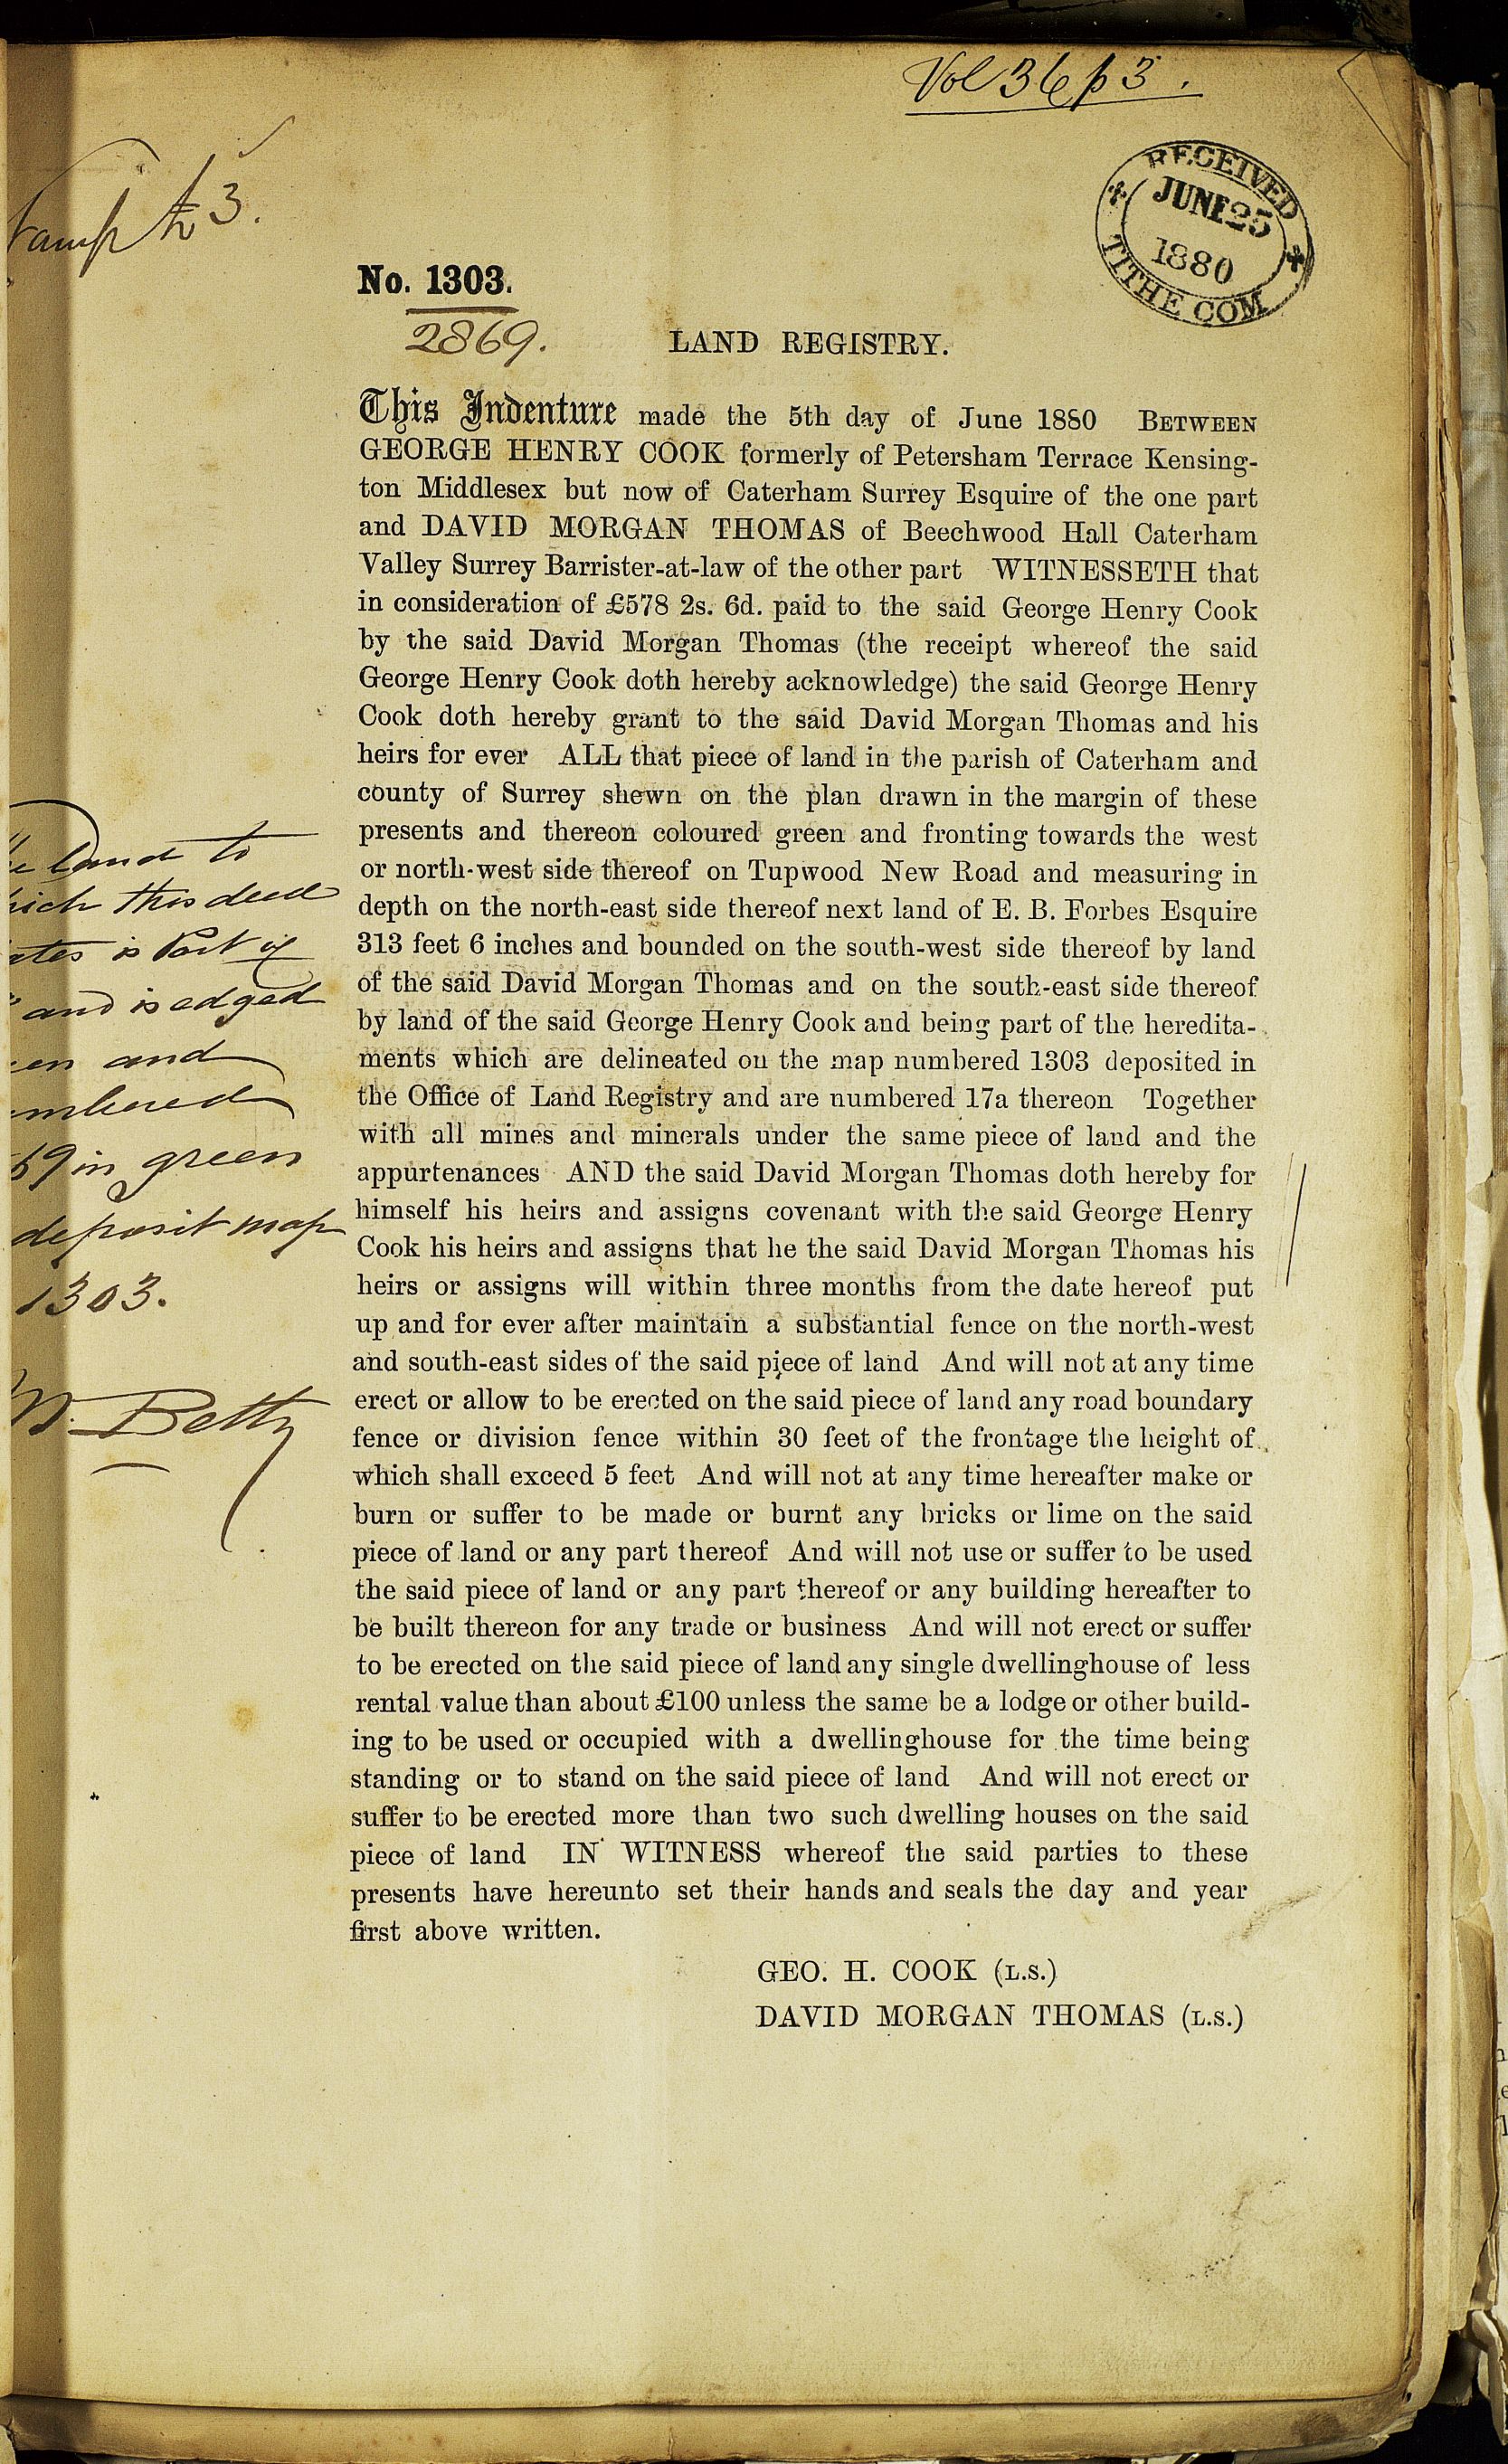 Vol 36 p 3.
RECEIVED
JUNE 25
1880
TITHE COM
3.
No. 1303.
2869.
LAND REGISTRY.
This Indenture made the 5th day of June 1880 BETWEEN
GEORGE HENRY COOK formerly of Petersham Terrace Kensing-
ton Middlesex but now of Caterham Surrey Esquire of the one part
and DAVID MORGAN THOMAS of Beechwood Hall Caterham
Valley Surrey Barrister-at-law of the other part WITNESSETH that
in consideration of £578 2s. 6d. paid to the said George Henry Cook
by the said David Morgan Thomas (the receipt whereof the said
George Henry Cook doth hereby acknowledge) the said George Henry
Cook doth hereby grant to the said David Morgan Thomas and his
heirs for ever ALL that piece of land in the parish of Caterham and
county of Surrey shewn on the plan drawn in the margin of these
presents and thereon coloured green and fronting towards the west
or north-west side thereof on Tupwood New Road and measuring in
depth on the north-east side thereof next land of E. B. Forbes Esquire
313 feet 6 inches and bounded on the south-west side thereof by land
of the said David Morgan Thomas and on the south-east side thereof
by land of the said George Henry Cook and being part of the heredita-
ments which are delineated on the map numbered 1303 deposited in
the Office of Land Registry and are numbered 17a thereon Together
with all mines and minerals under the same piece of land and the
appurtenances AND the said David Morgan Thomas doth hereby for
himself his heirs and assigns covenant with the said George Henry
Cook his heirs and assigns that he the said David Morgan Thomas his
heirs or assigns will within three months from the date hereof put
up and for ever after maintain a substantial fence on the north-west
and south-east sides of the said piece of land And will not at any time
erect or allow to be erected on the said piece of land any road boundary
fence or division fence within 30 feet of the frontage the height of
which shall exceed 5 feet And will not at any time hereafter make or
burn or suffer to be made or burnt any bricks or lime on the said
piece of land or any part thereof And will not use or suffer to be used
the said piece of land or any part thereof or any building hereafter to
be built thereon for any trade or business And will not erect or suffer
to be erected on the said piece of land any single dwellinghouse of less
rental value than about £100 unless the same be a lodge or other build-
ing to be used or occupied with a dwellinghouse for the time being
standing or to stand on the said piece of land And will not erect or
suffer to be erected more than two such dwelling houses on the said
piece of land IN WITNESS whereof the said parties to these
presents have hereunto set their hands and seals the day and year
first above written.
GEO. H. COOK (L.S.)
DAVID MORGAN THOMAS (L.S.)
land to
this deed
is Part of
and is edged
and
in green
deposit map
1303.
Betty